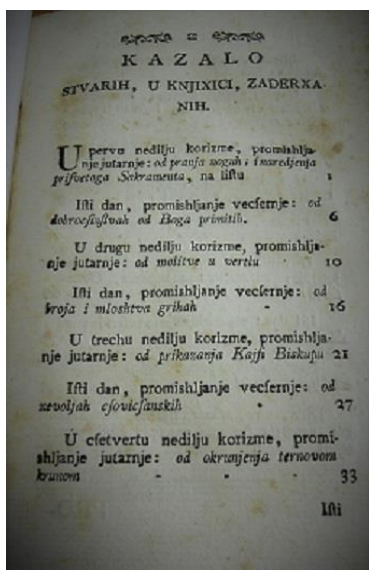 KAZALO
STVARIH, U KNJIXICI, ZADERXA-
NIH.
U pervu nedilju korizme, promishlja-
nje jutarnje: od pranja nogah i naredjenja
prisvetoga Sakramenta, na liſtu 1
Iſti dan, promishljanje vecſernje: od
dobrocſinſtvah od Boga primitih. 6
U drugu nedilju korizme, promishlja-
nje jutarnje: od molitve u vertlu 10
Iſti dan, promishljanje vecſernje: od
broja i mloshtva grihah 16
U trechu nedilju korizme, promishlja-
nje jutarnje: od prikazanja Kajfi Biskupu 21
Iſti dan, promishljanje vecſernje: od
nevoljah cſovicſanskih 27
U cſetvertu nedilju korizme, promi-
shljanje jutarnje: od okrunjenja ternovom
krunom 33
Iſti